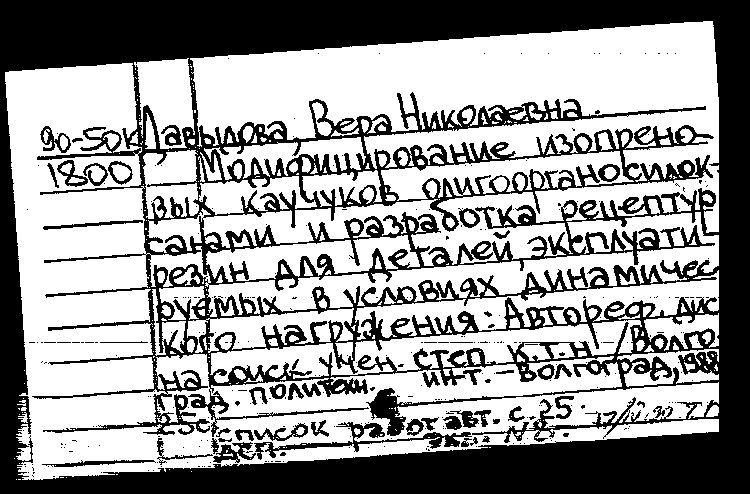 90-50к Давыдова, Вера Николаевна.
1800 Модифицирование изопрено-
вых каучуков олигоорганосилок-
санами и разработка рецептур
резин для деталей, эксплуати-
руемых в условиях динамичес-
кого нагружения: Автореф. дис
на соиск. учен. степ. к.т.н. / Волго-
град. политехн. ин-т. - Волгоград, 1988
25с список работ авт. с. 25.
ДСП. экз. N 8